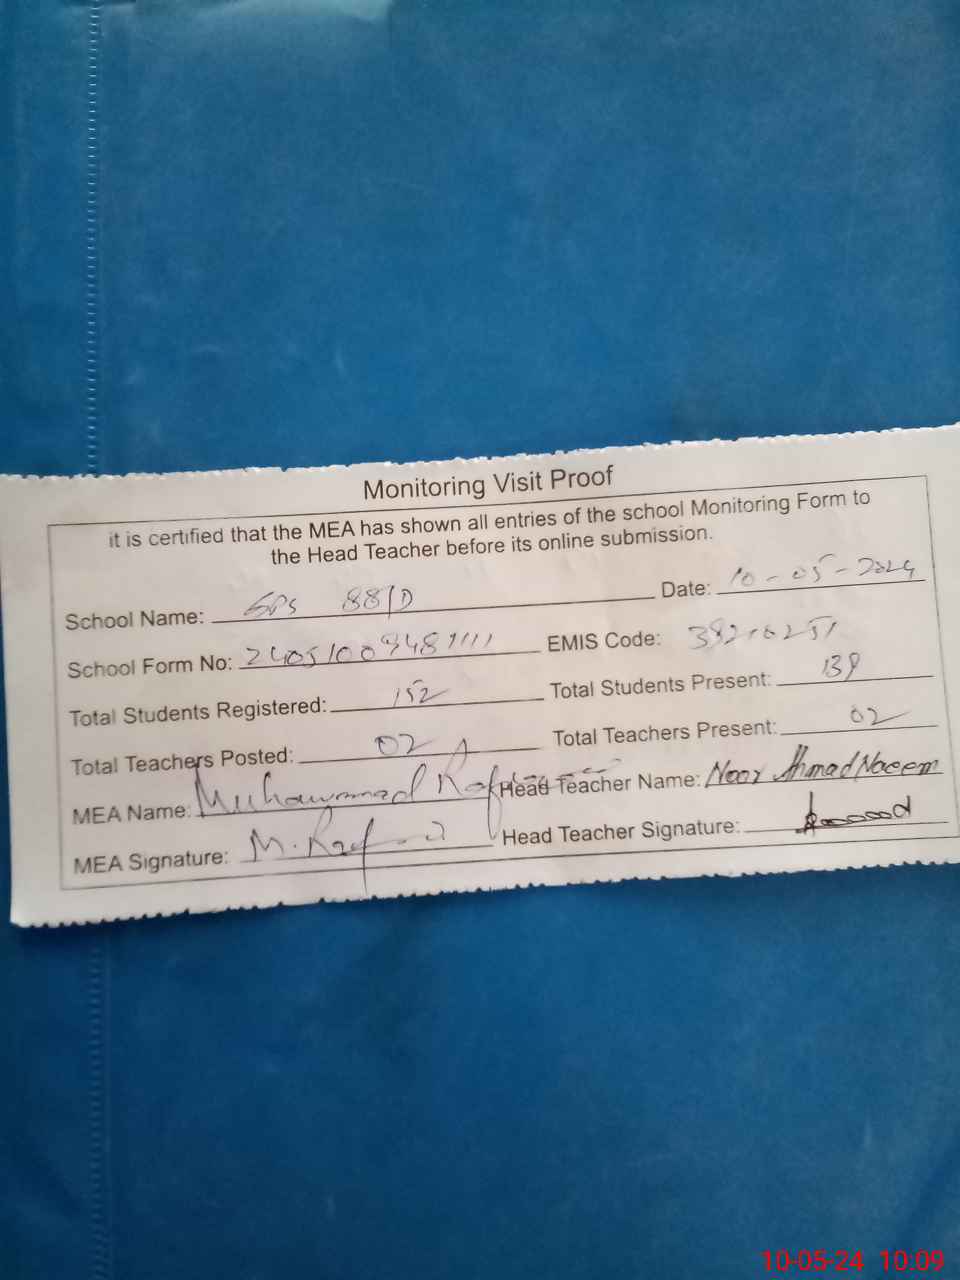 Monitoring Visit Proof
it is certified that the MEA has shown all entries of the school Monitoring Form to
the Head Teacher before its online submission.
School Name: GPS 88/D Date: 10-05-2024
School Form No: EMIS Code:
Total Students Registered: 152 Total Students Present: 139
Total Teachers Posted: 02 Total Teachers Present: 02
MEA Name: Muhammad Head Teacher Name: Noor Ahmad Naeem
MEA Signature: Head Teacher Signature:
10-05-24 10:09